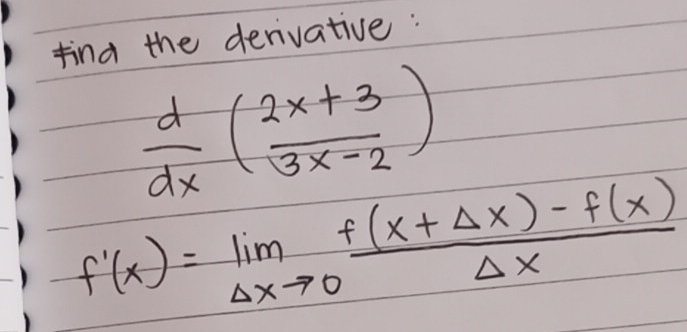 Find the derivative:
d/dx ( (2x+3)/(3x-2) )
f'(x) = lim Δx→0 (f(x+Δx) - f(x))/Δx